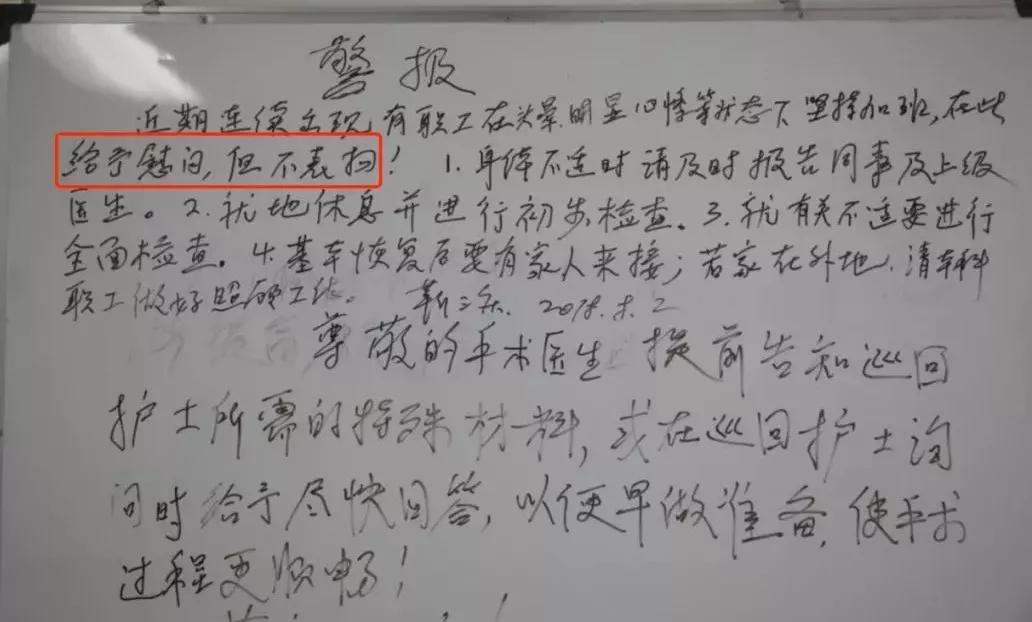 警报
近期连续出现有职工在头晕、明显心悸等状态下坚持加班,在此
给予慰问,但不表扬! 1.身体不适时请及时报告同事及上级
医生。2.就地休息并进行初步检查。3.就有关不适要进行
全面检查。4.基本恢复后要有家人来接;若家在外地,请本科
职工做好照顾工作。 2018.5.2
尊敬的手术医生 提前告知巡回
护士所需的特殊材料,或在巡回护士询
问时给予尽快回答,以便早做准备,使手术
过程更顺畅!